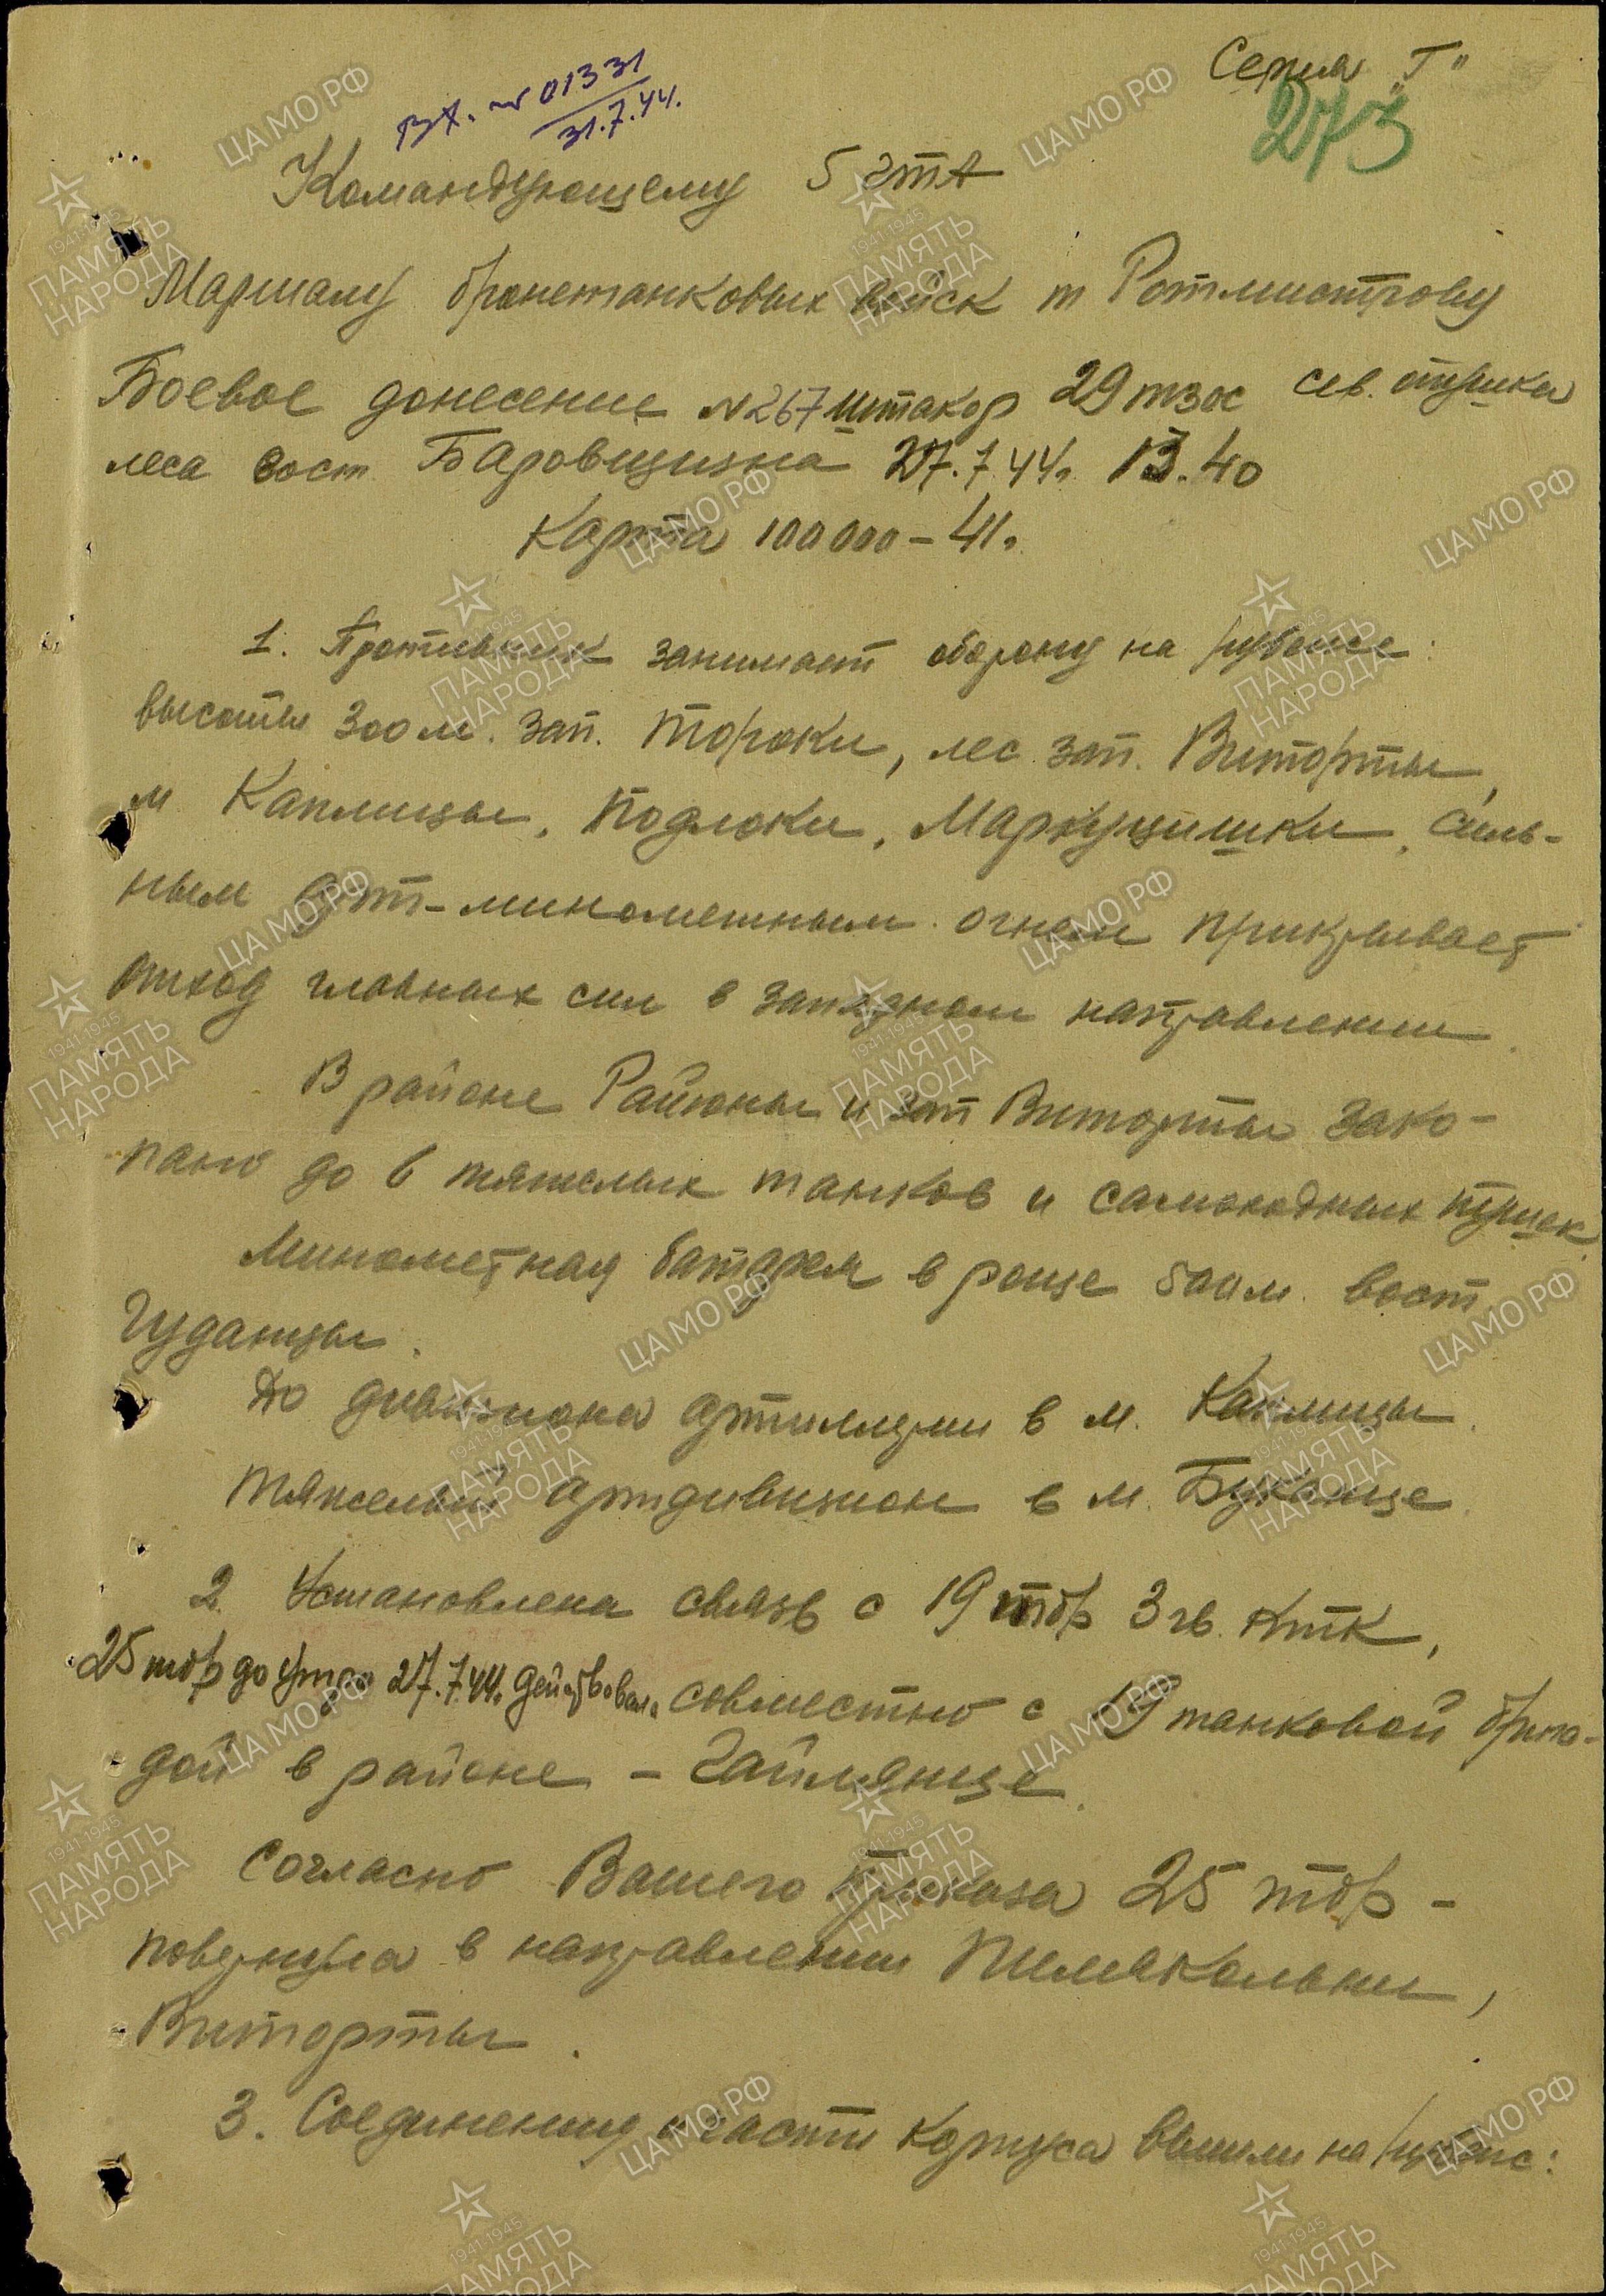 Серия "Г"
273
Вх. № 01331
31.7.44.
Командующему 5 гтА
Маршалу бронетанковых войск т Ротмистрову
Боевое донесение №267 штакор 29 тзос сев. опушка
леса вост. Баровщизна 27.7.44г. 13.40
Карта 100000-41г.
1. Противник занимает оборону на рубеже:
высоты 300 м. зап. Тороки, лес зап. Виторты,
м Каплицы, Подлоки, Маркушишки, силь-
ным арт-минометным огнем прикрывает
отход главных сил в западном направлении.
В районе Районы и зап Виторты зако-
пано до 6 тяжелых танков и самоходных пушек.
Минометная батарея в роще 500 м. вост
Гуданцы.
До дивизиона артиллерии в м. Каплицы.
Тяжелый артдивизион в м. Буканце.
2. Установлена связь с 19 тбр 3 гв. ктк,
25 тбр до утра 27.7.44г. действовала совместно с 19 танковой брига-
дой в районе - Гайлянце.
Согласно Вашего Приказа 25 тбр -
повернула в направлении Пилякальни,
Виторты.
3. Соединения и части корпуса вышли на рубеж: